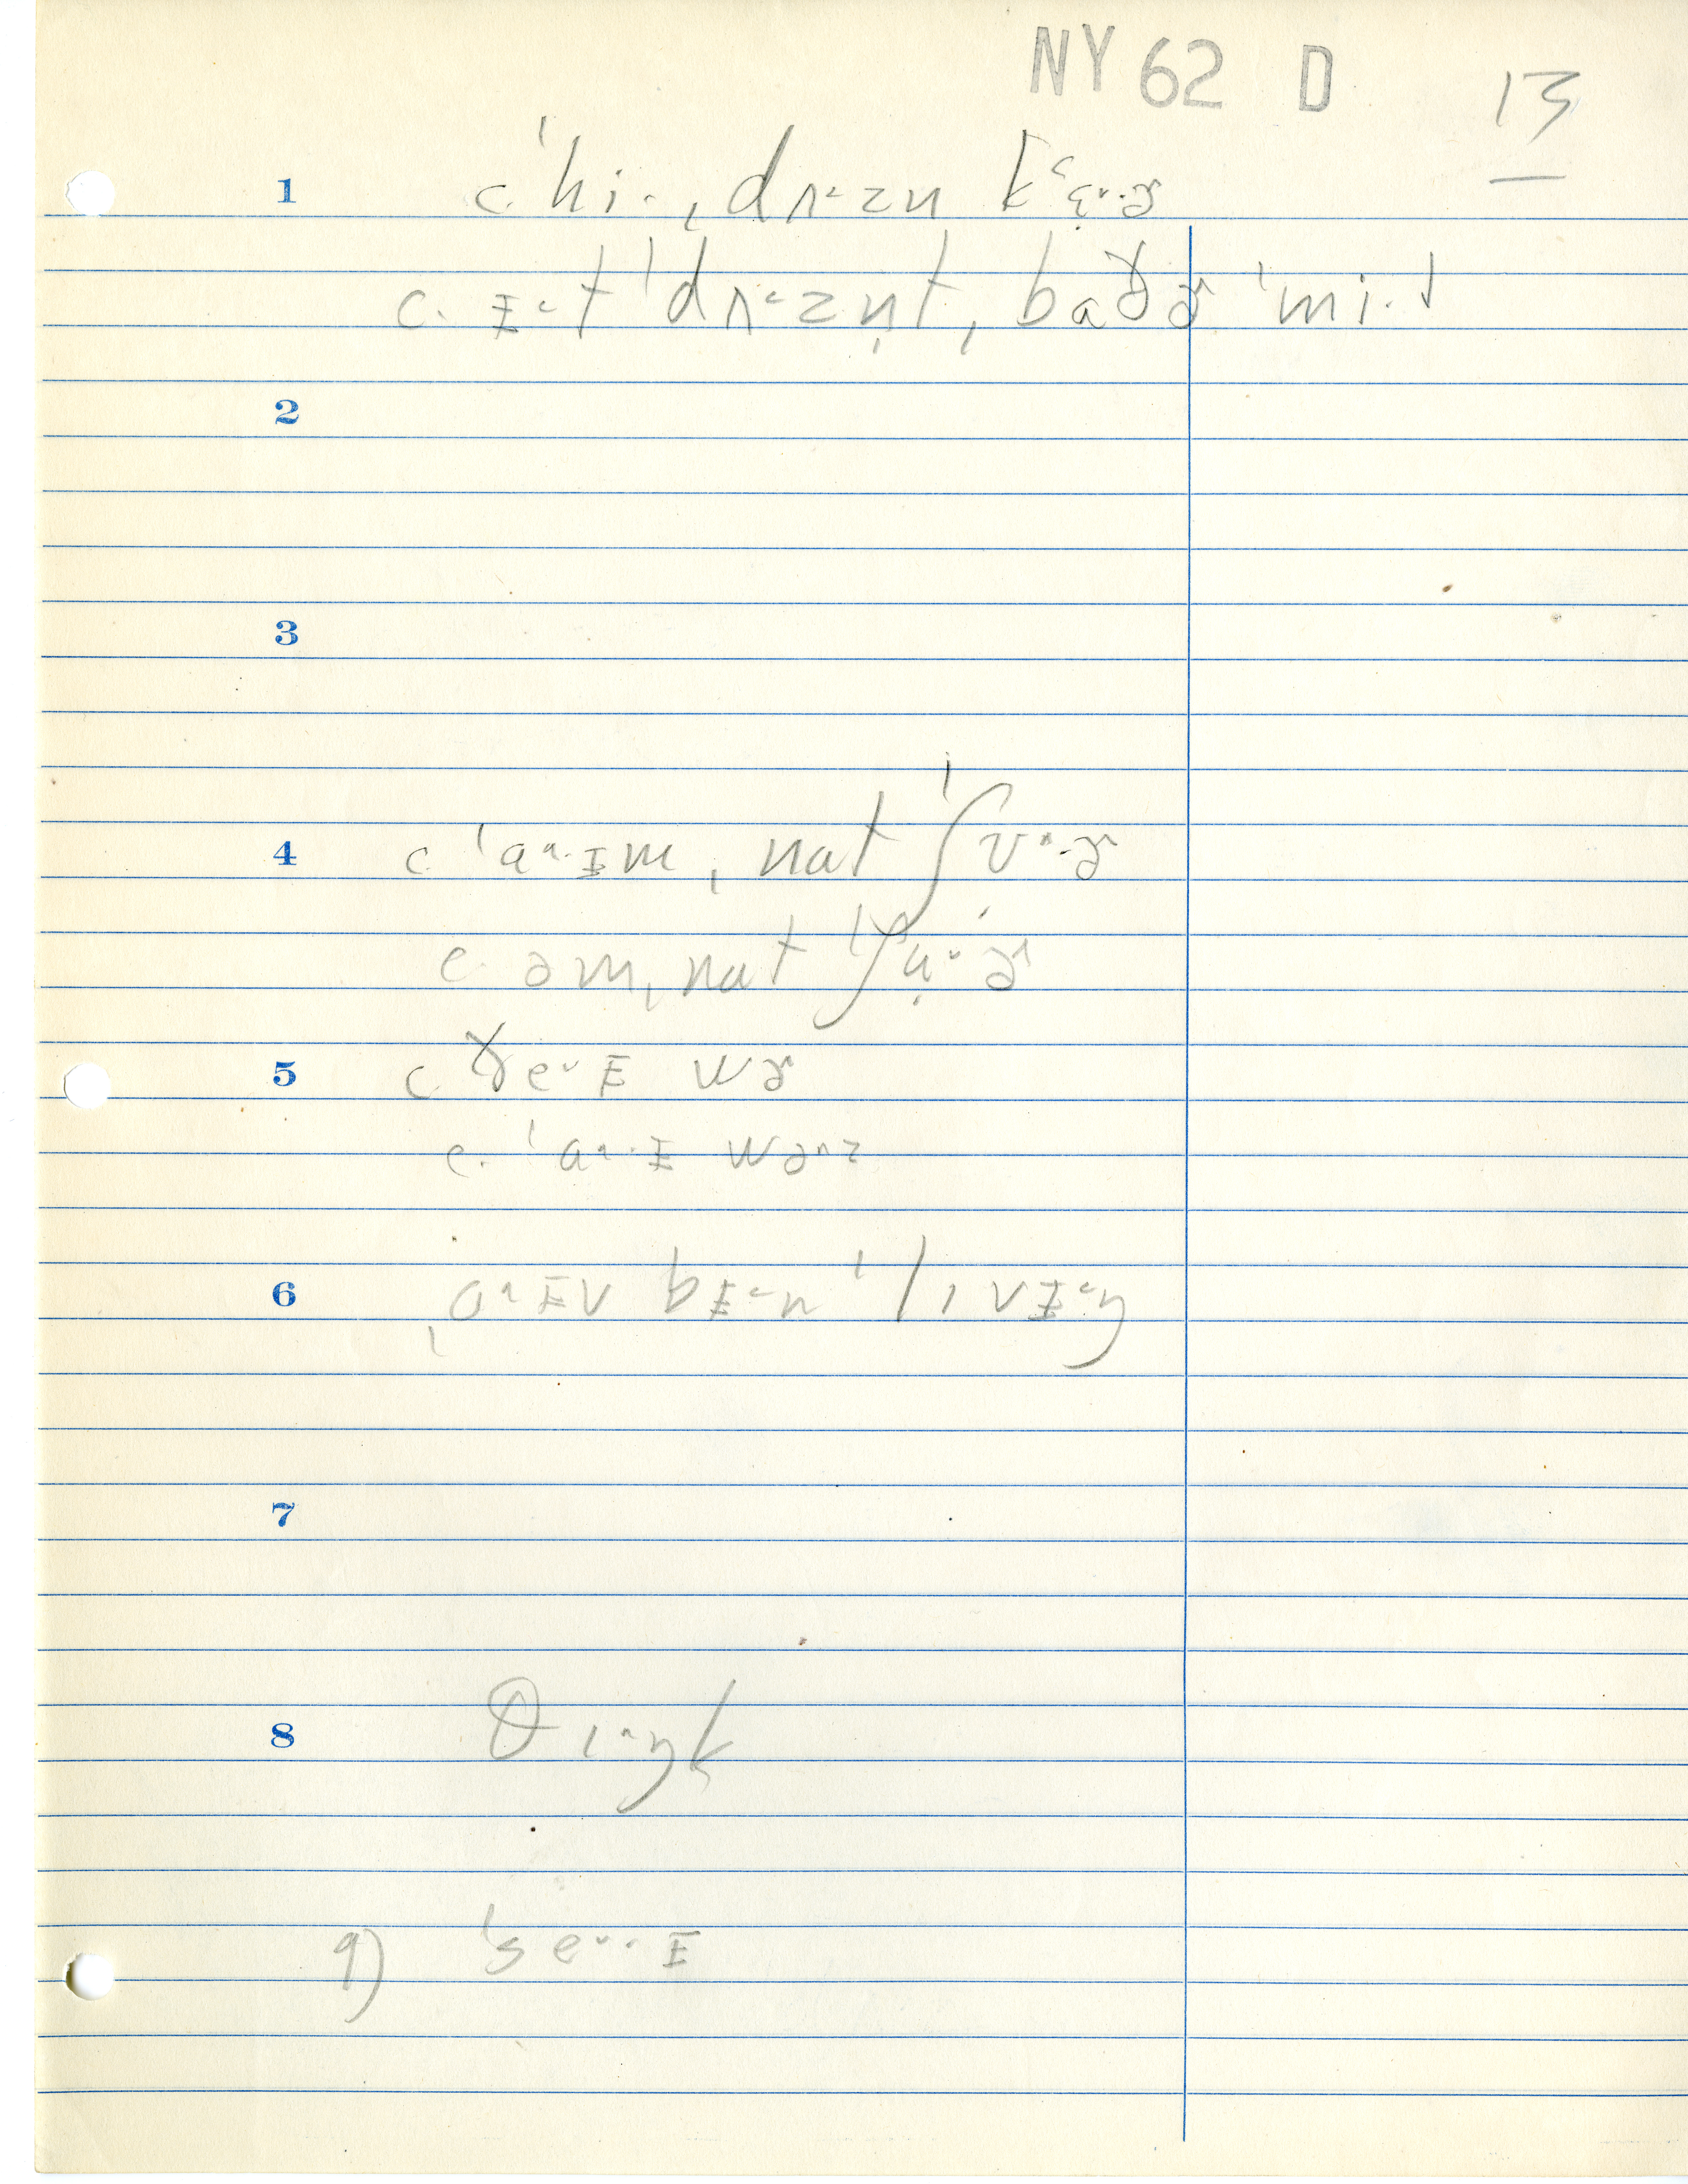 NY 62 D 13
1 c. ˈhi·, ˌdʌ˂zn kʻɛ̣˅·ɚ
c. ᵻ˂t ˈdʌ˂zn̩t, baðɚ ˈmi·
2
3
4 c ˈa˄·ᵻm, nat ˈʃʊ˄·ɚ
c. əm, nat ˈʃụ˅ɚ
5 c. ðe˅ᵻ wɚ
c. ˈa˄·ᵻ wə˄z
6 ˌa˄ᵻv bᵻ˂n ˈlɪvᵻ˂ŋ
7
8 θɪ˄ŋk
9) ˈse˅·ᵻ